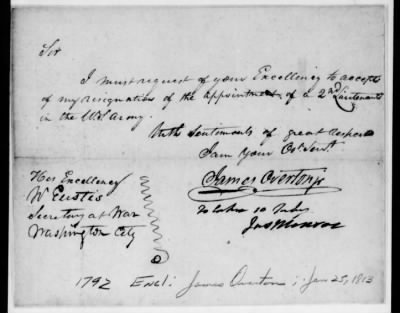 Sir
I must request of your Excellency to accept
of my resignation of the appointment of a 2nd Lieutenant
in the U.S. Army.
With sentiments of great respect
I am your Obt Servt
James Overton Jr
His Excellency
W Eustis
Secretary at War
Washington City
To take 10 July
Jas Monroe
1792 Encl: James Overton; Jan 25, 1813